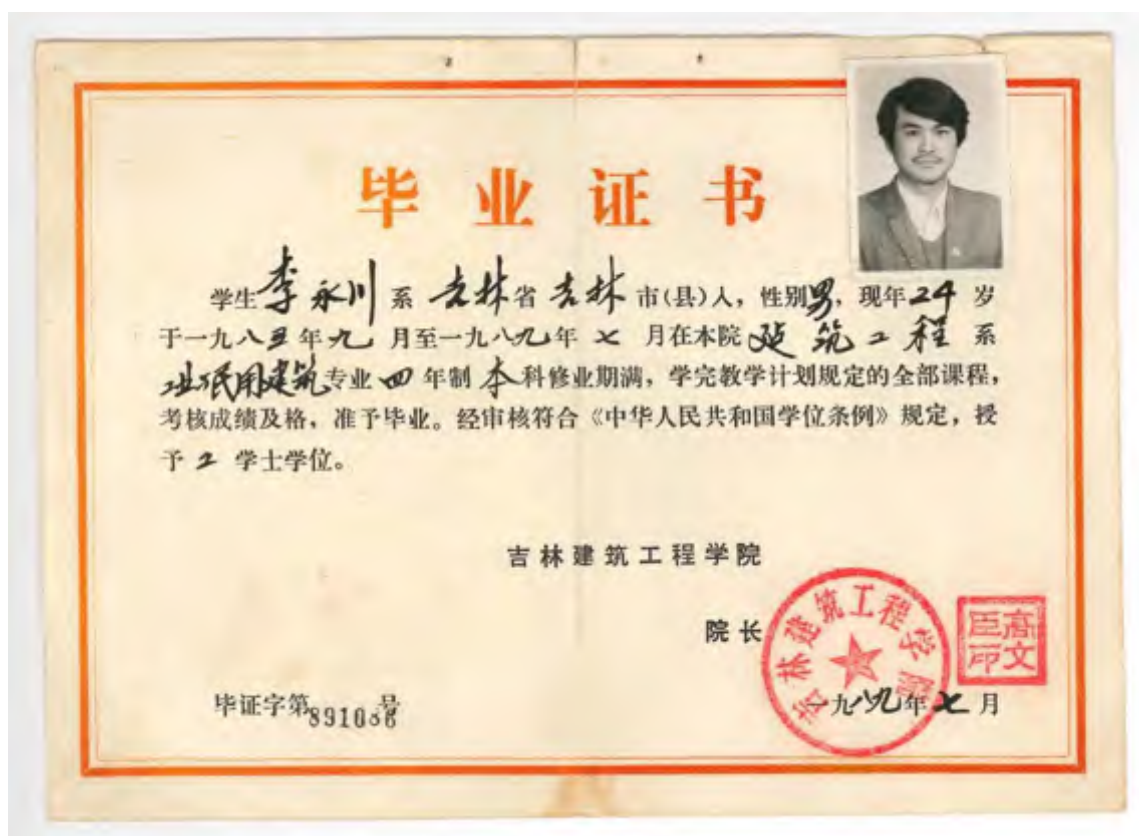 毕业证书
学生李永川系吉林省吉林市(县)人，性别男，现年24岁
于一九八五年九月至一九八九年七月在本院建筑工程系
业民用建筑专业四年制本科修业期满，学完教学计划规定的全部课程，
考核成绩及格，准予毕业。经审核符合《中华人民共和国学位条例》规定，授
予工学士学位。
吉林建筑工程学院
院长
吉林建筑工程学院
高文
臣印
毕证字第 号
一九八九年七月